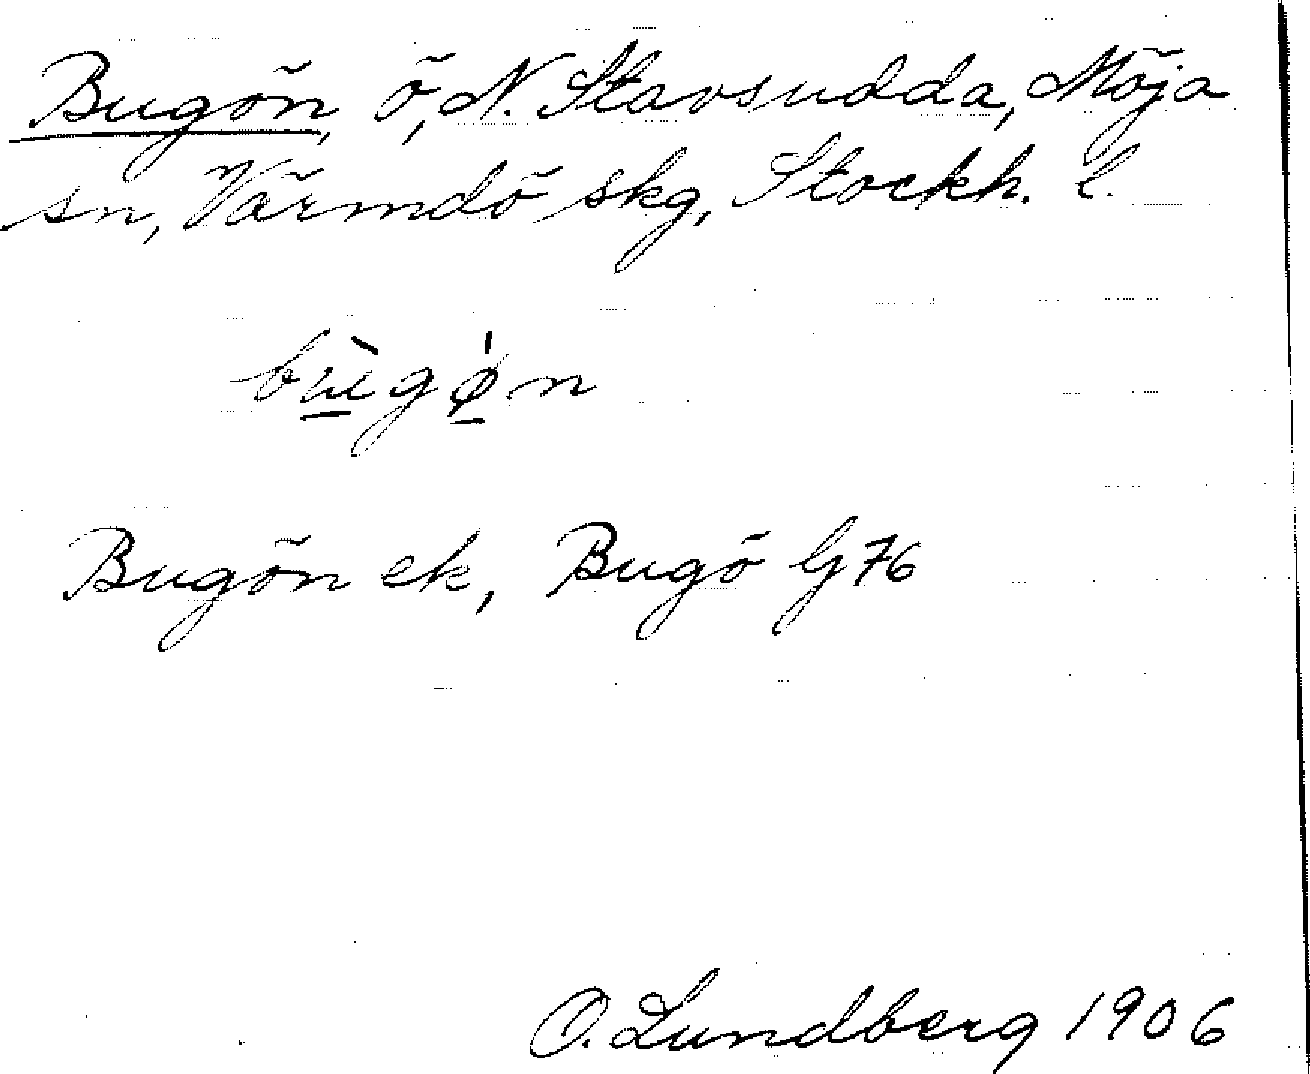 Bugön, ö, N. Stavsudda, Möja
sn, Värmdö skg, Stockh. l.
bù̲gǿ̲n
Bugön ek, Bugö G 76
O. Lundberg 1906